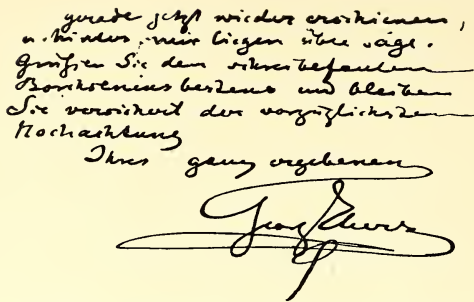 gerade jetzt wieder erschienen,
u. hinter mir liegen üble Tage.
Grüßen Sie den
bestens und bleiben
Sie versichert der vorzüglichsten
Hochachtung
Ihres ganz ergebenen
Georg Ebers